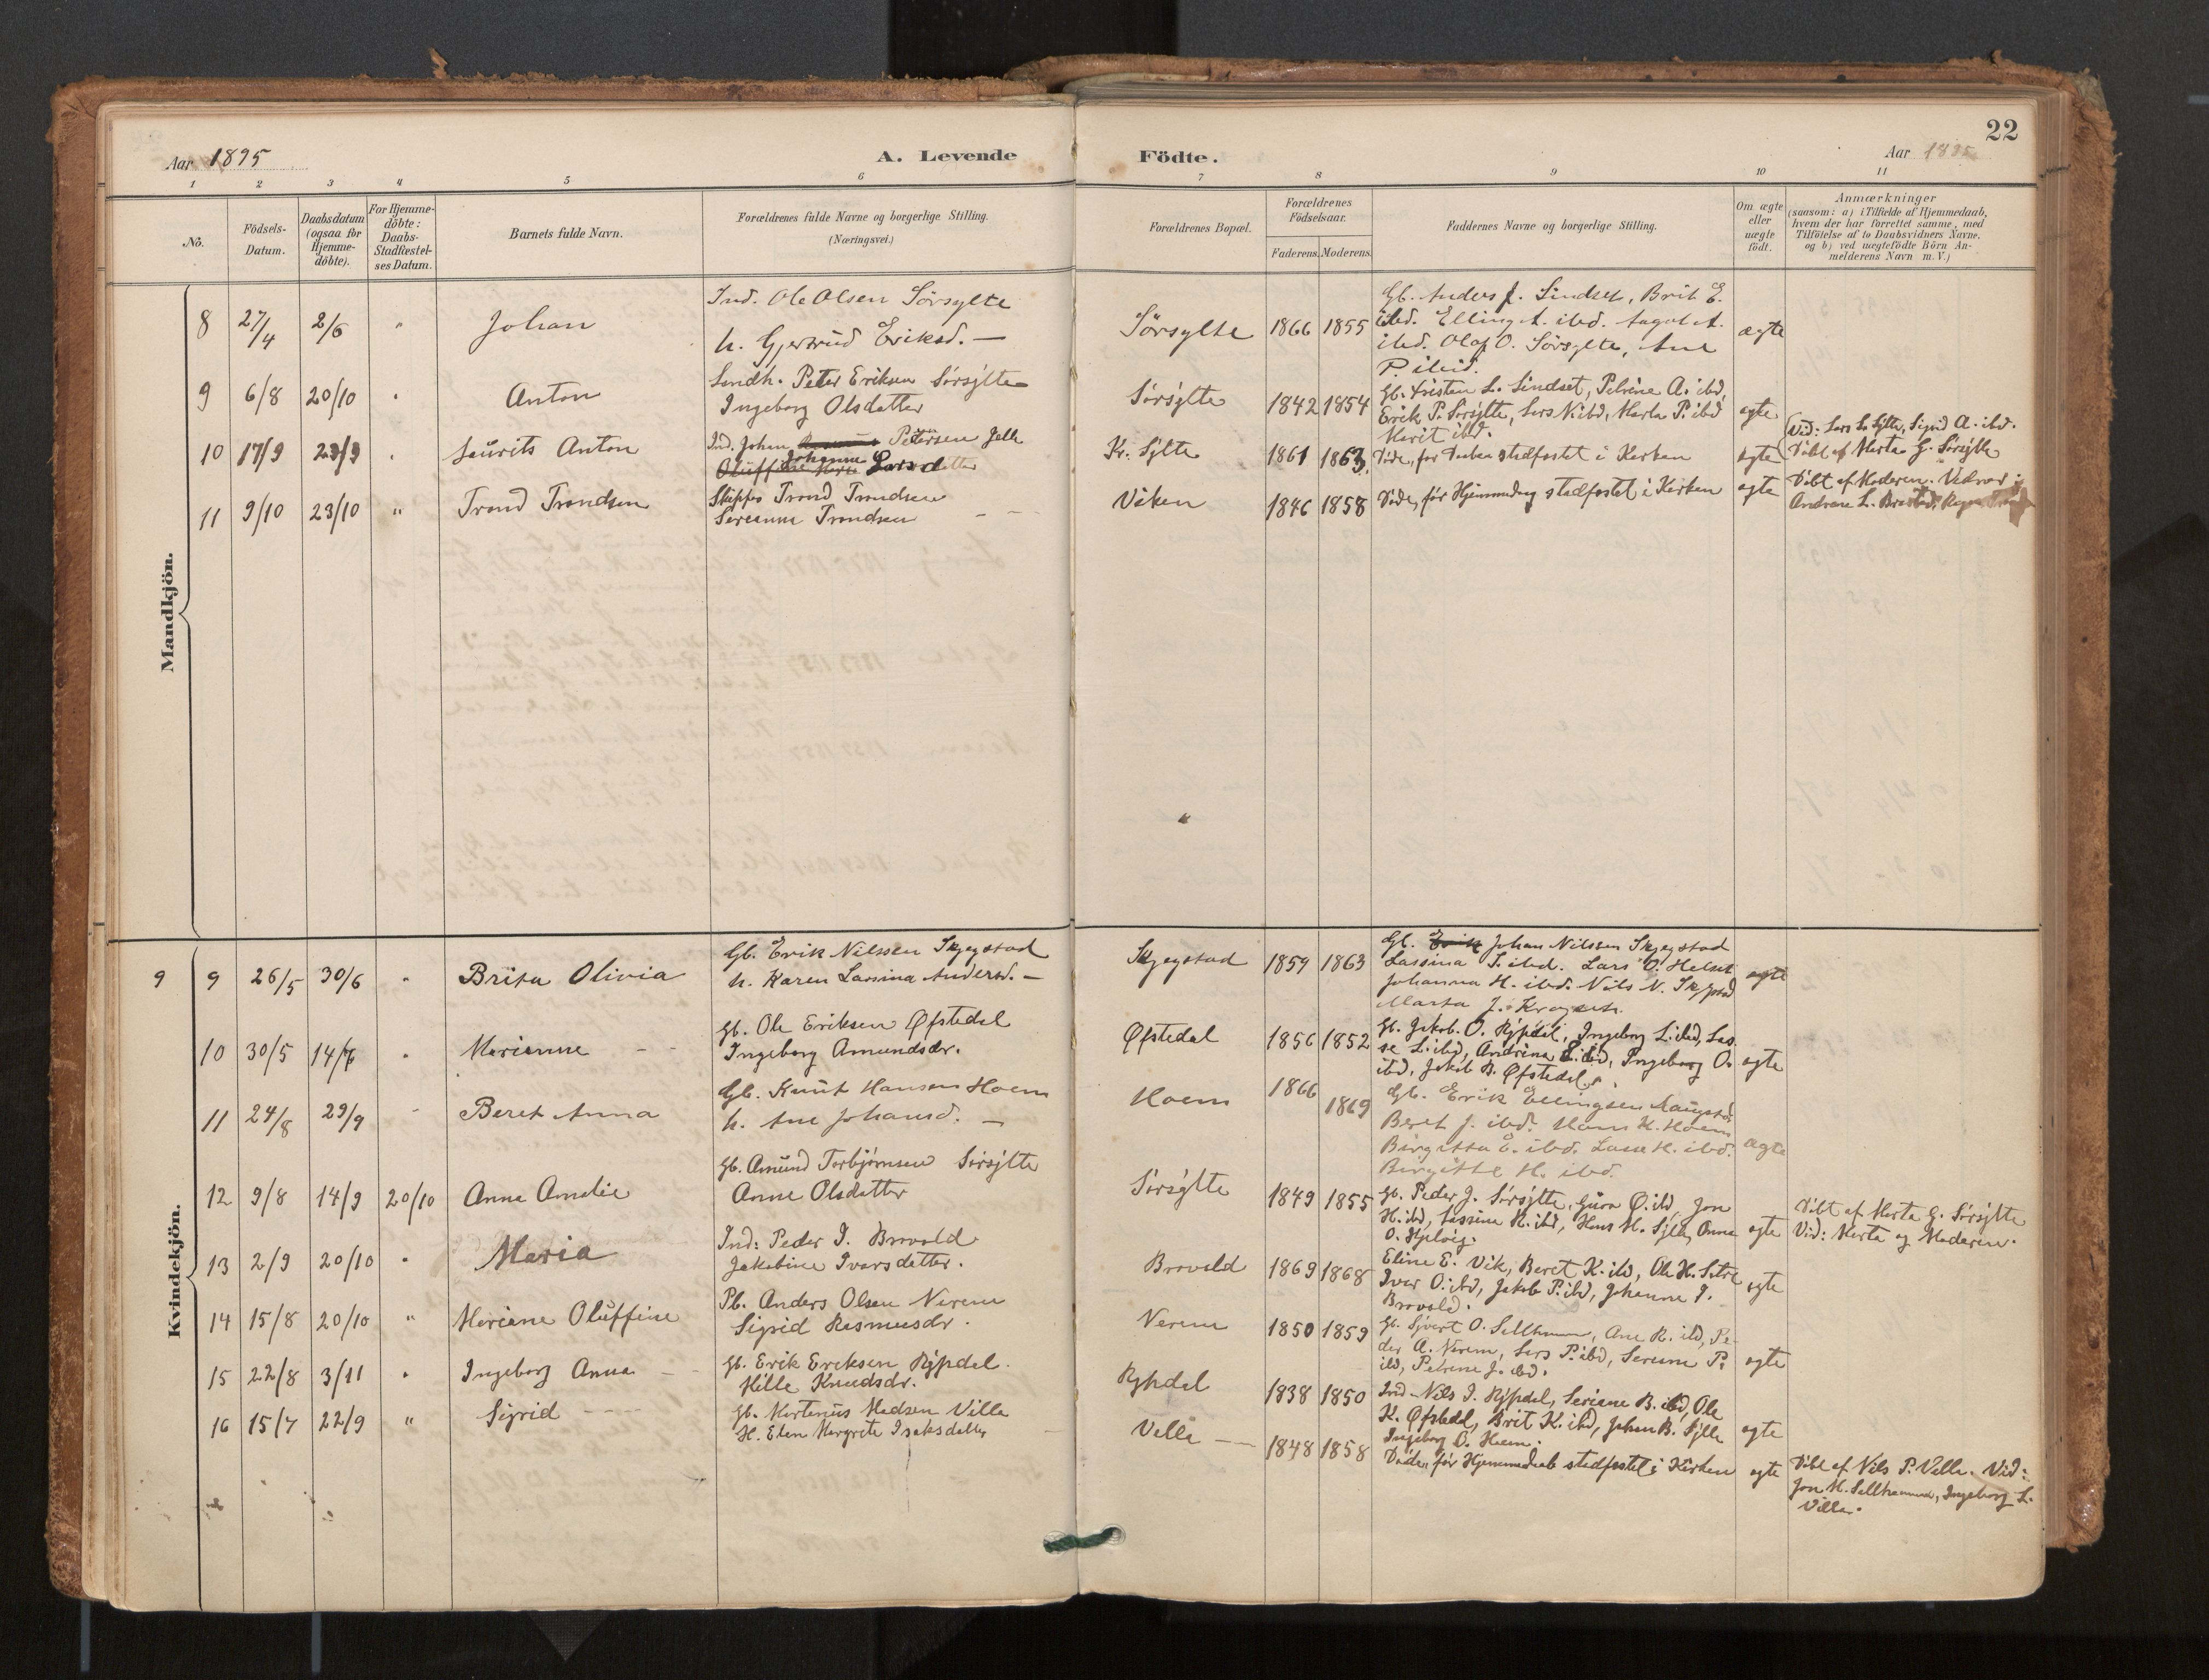 22
Aar 1895
A. Levende
Födte.
Aar 1895
1 2 3 4 5 6 7 8 9 10 11
No.
Födsels-
Datum.
Daabsdatum
(ogsaa for
Hjemme-
döbte).
For Hjemme-
döbte:
Daabs-
Stadfæstel-
ses Datum.
Barnets fulde Navn.
Forældrenes fulde Navne og borgerlige Stilling.
(Næringsvei.)
Forældrenes Bopæl.
Forældrenes
Födselsaar.
Faderens. Moderens.
Faddernes Navne og borgerlige Stilling.
Om ægte
eller
uægte
födt.
Anmærkninger
(saasom: a) i Tilfælde af Hjemmedaab,
hvem der har forrettet samme, med
Tilföielse af to Daabsvidners Navne,
og b) ved uægtefödte Börn An-
melderens Navn m. V.)
Mandkjön.
8 27/4 2/6 " Johan
Ind. Ole Olsen Sörsylte
h. Gjertrud Eriksd. —
Sörsylte 1866 1855
Gb. Anders J. Lindset, Brit E.
ibd. Elling A. ibd. Aagot A.
ibd. Olaf O. Sörsylte, Ane
P. ibid.
ægte
9 6/8 20/10 " Anton
Peter Eriksen Sörsylte
Ingeborg Olsdatter
Sörsylte 1842 1854
Gb. Kristen L. Lindset, Petrine A. ibd,
Erik P. Sörsylte, Lars N. ibd, Marta P. ibd
Marit ibd.
ægte
10 17/9 23/9 " Laurits Anton
Ind. Johan Petersen
Johanna Larsdatter
Kr. Sylte 1861 1863
Döde, för Daaben stadfæstet i Kirken
ægte
Vid: Lars L. Sylte, Sigrid A. ibd.
Döbt af Marta G. Sörsylte
11 9/10 23/10 " Trond Trondsen
Skipper Trond Trondsen
Serianna Trondsen
Viken 1846 1858
Döde, för Hjemmedaab stadfæstet i Kirken
ægte
Döbt af Moderen.
Andrene L.
Kvindekjön.
9 9 26/5 30/6 " Brita Olivia
Gb. Erik Nilssen Skjegstad
h. Karen Lassina Andersd. —
Skjegstad 1859 1863
Gb. Erik Johan Nilssen Skjegstad
Lassina J. ibd. Lars O. Helset
Johanna H. ibd. Nils N. Skjegstad
Marta J.
ægte
10 30/5 14/7 " Marianne
Gb. Ole Eriksen Øfstedal
Ingeborg Amundsdr.
Øfstedal 1856 1852
Gb. Jakob O. Rypdal, Ingeborg L. ibd, Las-
se L. ibd, Andrina E. ibd, Ingeborg O.
ibd, Jakob B. Øfstedal.
ægte
11 24/8 29/9 " Beret Anna
Gb. Knut Hansen Hoem
h. Ane Johansd. —
Hoem 1866 1869
Gb. Erik Ellingsen
Beret J. ibd. Hans K. Hoem
Birgitta E. ibd. Lasse H. ibd.
Birgitte H. ibd.
ægte
12 9/8 14/9 20/10 Anna Amalie
Gb. Amund Torbjörnsen Sörsylte
Anne Olsdatter
Sörsylte 1849 1855
Gb. Peder J. Sörsylte, Guro Ø. ibd, Jon
H. ibd, Lassina K. ibd, Hans M. Sylte, Anna
O. Hjelvig.
ægte
Döbt af Marta G. Sörsylte
Vid: Marta og Moderen.
13 2/9 20/10 " Maria
Ind: Peder I. Brovold
Jakobine Ivarsdatter.
Brovold 1869 1868
Eline E. Vik, Beret K. ibd, Ole H. Sætre
Ivar O. ibd, Jakob P. ibd, Johanne I.
Brovold.
ægte
14 15/8 20/10 " Mariane Oluffine
Pb. Anders Olsen Nerem
Sigrid Rasmusdr.
Nerem 1850 1859
Gb. Sjvert O. Ane R. ibd, Pe-
der A. Nerem, Lars P. ibd, Serine P.
ibd, Petrine J. ibd.
ægte
15 22/8 3/11 " Ingeborg Anna
Gb. Erik Eriksen Rypdal.
Kille Knudsdr.
Rypdal 1838 1850
Ind. Nils I. Rypdal, Seriane B. ibd, Ole
K. Øfstedal, Brit K. ibd, Johan B. Sylte
Ingeborg O. Hoem.
ægte
16 15/7 22/9 " Sigrid
Gb. Martinus Madsen Villa
H. Elen Margrete Isaksdatter
Villa 1848 1858
Döde, för Hjemmedaab stadfæstet i Kirken
ægte
Döbt af Nils P. Villa. Vid:
Jon M. Ingeborg L.
Villa.